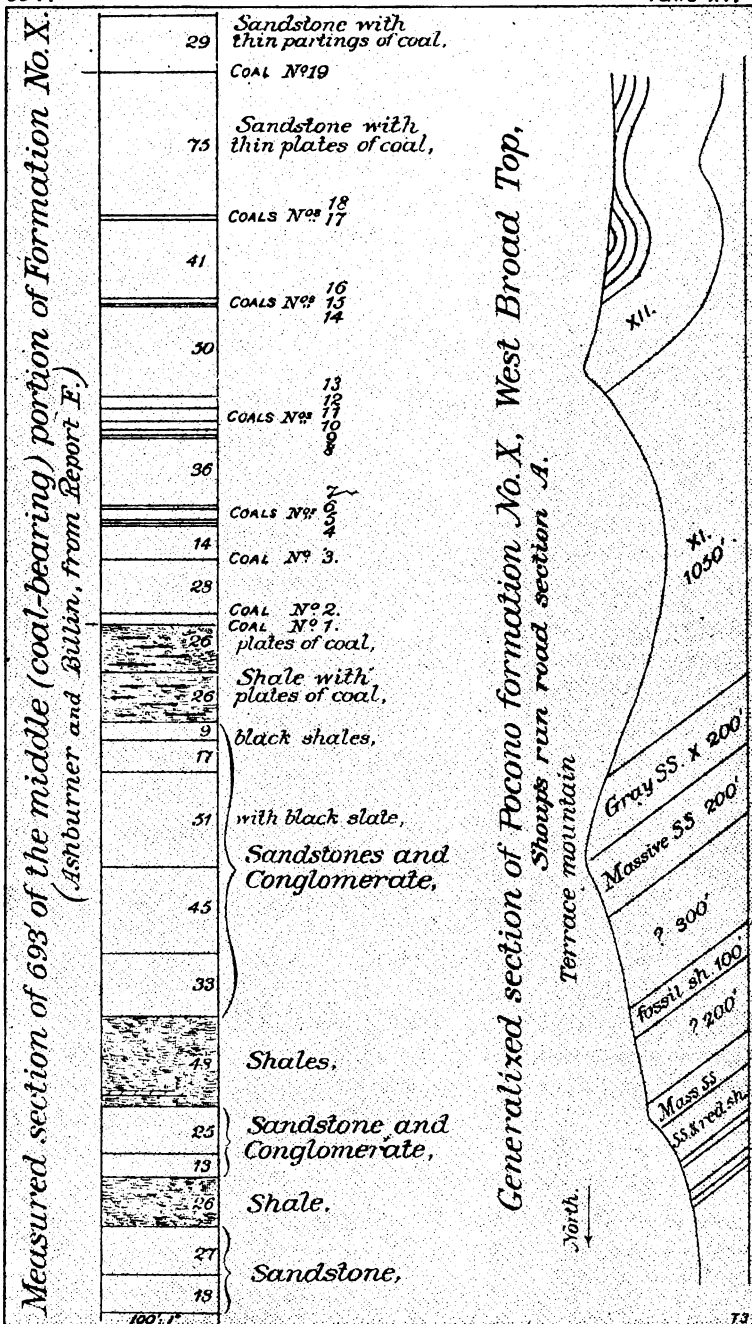 Measured section of 693' of the middle (coal-bearing) portion of Formation No. X.
(Ashburner and Billin, from Report F.)
29
Sandstone with
thin partings of coal,
COAL Nº 19
75
Sandstone with
thin plates of coal,
18
COALS Nºs 17
41
16
COALS Nºs 15
14
50
13
12
COALS Nºs 11
10
9
8
36
7
COALS Nºs 6
5
4
14
COAL Nº 3.
28
COAL Nº 2.
COAL Nº 1.
26
plates of coal,
Shale with
26
plates of coal,
9
black shales,
17
51
with black slate,
Sandstones and
Conglomerate,
45
33
Shales,
25
Sandstone and
Conglomerate,
13
26
Shale.
27
Sandstone,
18
100': 1"
Generalized section of Pocono formation No. X, West Broad Top,
Shoups run road section A.
Terrace mountain
North.
XII.
XI.
1050'
Gray SS. X 200'
Massive SS 200'
? 300'
fossil sh. 100'
? 200'
Mass SS
SS & red sh.